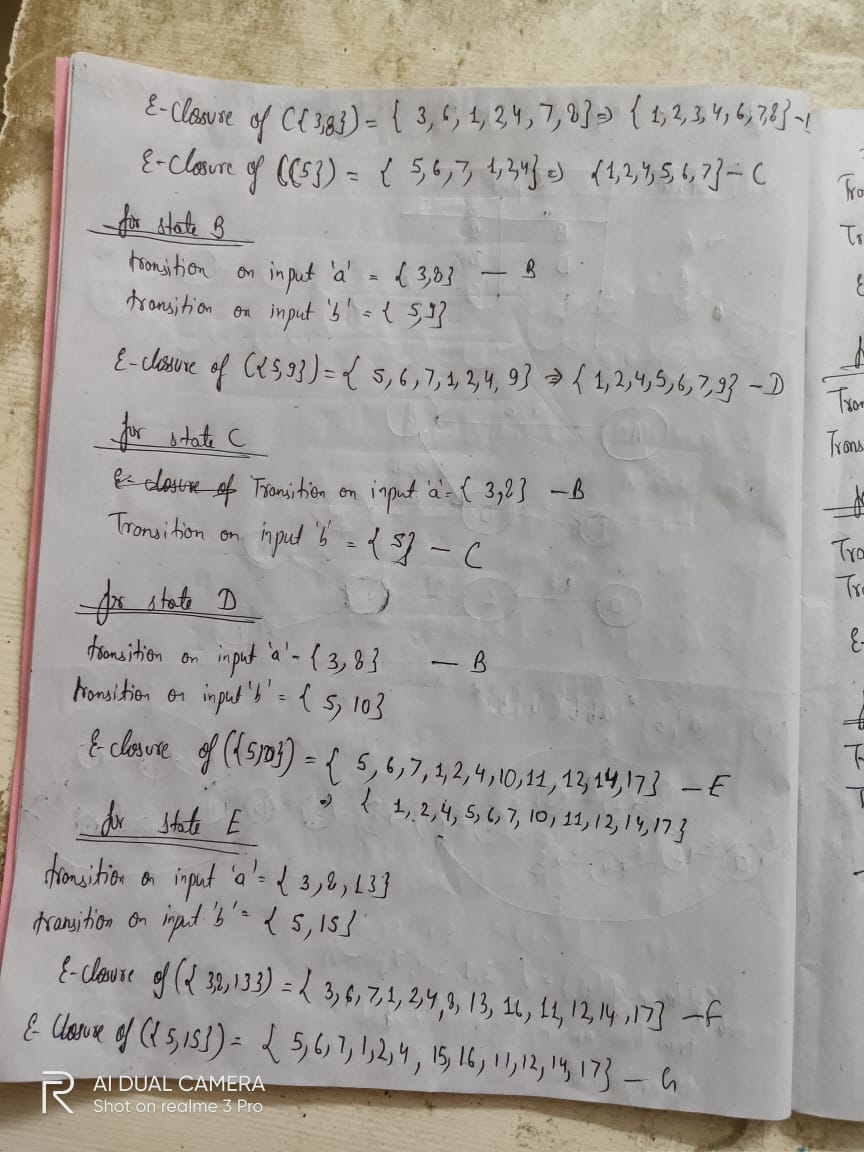 ε-Closure of ({3,8}) = { 3, 6, 1, 2,4, 7, 8} ⇒ { 1, 2, 3, 4, 6, 7,8} -
ε-Closure of (({5}) = { 5,6,7, 1,2,4} ⇒ {1,2,4,5,6,7} - C
for state B
transition on input 'a' = { 3,8} — B
transition on input 'b' = { 5,9}
ε-closure of ({5,9}) = { 5, 6, 7, 1, 2, 4, 9} ⇒ { 1,2,4,5,6,7,9} - D
for state C
ε-closure of Transition on input 'a' = { 3,8} - B
Transition on input 'b' = { 5} - C
for state D
transition on input 'a' - { 3, 8} — B
transition on input 'b' = { 5, 10}
ε-closure of ({5,10}) = { 5, 6, 7, 1, 2, 4, 10, 11, 12, 14, 17} - E
⇒ { 1, 2, 4, 5, 6, 7, 10, 11, 12, 14, 17}
for state E
transition on input 'a' = { 3, 8, 13}
transition on input 'b' = { 5, 15}
ε-closure of ({ 3,8,13}) = { 3, 6, 7, 1, 2, 4, 8, 13, 16, 11, 12, 14, 17} - F
ε-Closure of ({5,15}) = { 5, 6, 7, 1, 2, 4, 15, 16, 11, 12, 14, 17} - G
Tro
Tr
ε
Tron
Trans
Tro
Tr
ε-
T
T
R AI DUAL CAMERA
Shot on realme 3 Pro